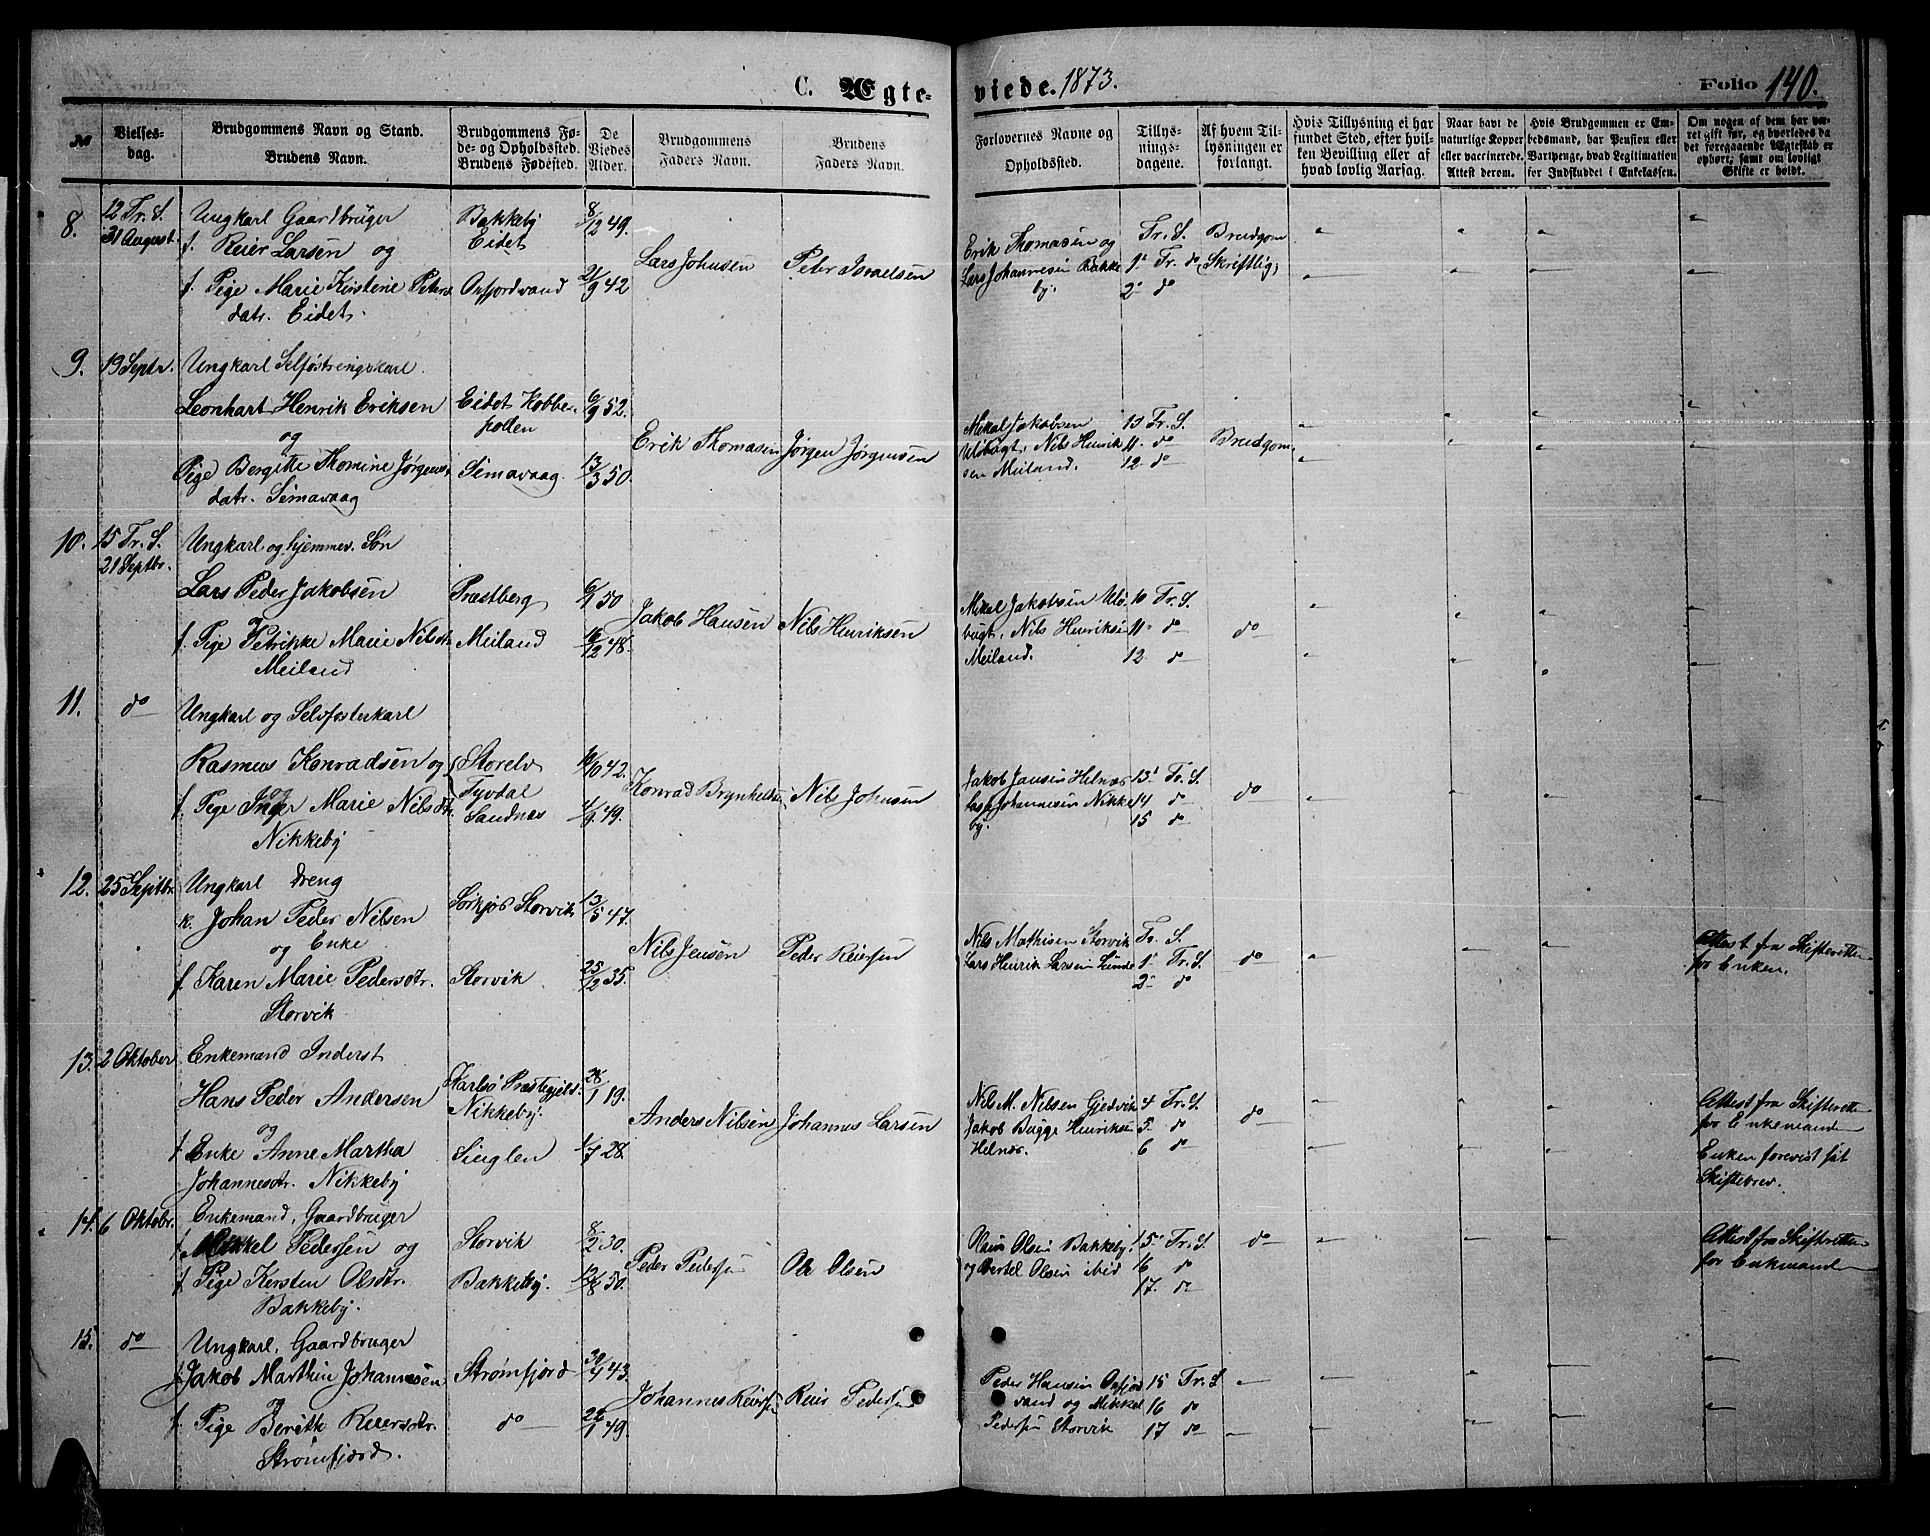 C. Ægte-
viede. 1873.
Folio 140.
№
Vielses-
dag.
Brudgommens Navn og Stand.
Brudens Navn.
Brudgommens Fø-
de- og Opholdssted.
Brudens Fødested.
De
Viedes
Alder.
Brudgommens
Faders Navn.
Brudens
Faders Navn.
Forlovernes Navne og
Opholdssted.
Tillys-
nings-
dagene.
Af hvem Til-
lysningen er
forlangt.
Hvis Tillysning ei har
fundet Sted, efter hvil-
ken Bevilling eller af
hvad lovlig Aarsag.
Naar havt de
naturlige Kopper
eller vaccinerede.
Attest derom.
Hvis Brudgommen er Em-
bedsmand, har Pension eller
Vartpenge, hvad Legitimation
for Indskuddet i Enkekassen.
Om nogen af dem har væ-
ret gift før, og hvorledes da
det foregaaende Ægteskab er
ophørt, samt om lovligt
Skifte er holdt.
8.
12 Tr. S.
31 August.
Ungkarl Gaardbruger
f. Reier Larsen og
f. Pige Marie Kirstine Peters
datr. Eidet.
Bakkeby
Eidet
Oxfjordvand
8/12 49.
21/9 42
Lars Johnsen
Peter Israelsen
Erik Thomasen og
Lars Johannesen Bakke
by.
Tr. S.
1' Tr. do
2- do
Brudgom
(Skriftlig)
9.
19 Septr.
Ungkarl Selføstringskarl
Leonhart Henrik Eriksen
og
Pige Bergitte Thomine Jørgens
datr. Simavaag
Eidet Kobbe-
pollen
Simavaag
6/9 52.
13/3 50.
Erik Thomasen
Jørgen Jørgensen
Mikal Jakobsen
Uløbugt, Nils Henrik
sen Meiland.
10 Tr. S.
11- do
12- do
Brudgom
10.
15 Tr. S.
21 Septbr.
Ungkarl og hjemmev. Søn
Lars Peder Jakobsen
og
f. Pige Petrikke Marie Nilsdtr.
Meiland
Præstberg
Meiland
6/1 50
16/12 48.
Jakob Hansen
Nils Henriksen
Mikal Jakobsen Ulø
bugt, Nils Henriksen
Meiland.
10 Tr. S.
11- do
12 do
do
11.
do
Ungkarl og Selvfosterkarl
Rasmus Konradsen og
f. Pige Inger Marie Nilsdtr.
Nikkeby
Storelv
Tyvdal
Sandnæs
10/10 42.
4/9 49.
Konrad Brynkelsen
Nils Johnsen
Jakob Jansen Helnæs
Johannesen Nikke
by.
13' Tr. S.
14 do
15 do
do
12.
25 Septbr.
Ungkarl Dreng
k. Johan Peder Nilsen
og Enke
f. Karen Marie Pedersdtr.
Storvik
Sørkjos Storvik
Storvik
13/5 47.
25/2 35.
Nils Jensen
Peder Reiersen
Nils Mathisen Storvik
Lars Henrik Larsen Sunde
Tr. S.
1' Tr. S.
2- do
do
Attest fra Skifteretten
for Enken.
13.
2 Oktober
Enkemand Inderst
Hans Peder Andersen
og
f. Enke Anne Martha
Johannesdtr. Nikkeby
Karlsø Præstegjeld.
Nikkeby.
Singlen
28/1 19.
1/7 28.
Anders Nilsen
Johannes Larsen
Nils M. Nilsen Gjedvik
Jakob Bugge Henriksen
Helnæs.
4 Tr. S.
5- do
6 do
do
Attest fra Skifteretten
for Enkemanden
Enken forevist sit
Skiftebrev.
14.
6 Oktobr.
Enkemand, Gaardbruger
f. Mikkel Pedersen og
f. Pige Kersten Olsdtr.
Bakkeby.
Storvik
Bakkeby.
8/2 30.
12/8 50.
Peder Pedersen
Ole Olsen
Olsen Bakkeby
og Bertel Olsen ibid
15' Tr. S.
16 do
17. do
do
Attest fra Skifteretten
for Enkemanden
15.
do
Ungkarl, Gaardbruger
f. Jakob Marthin Johannesen
og
f. Pige Berith Reiersdtr.
Strømfjord.
Strømfjord
do
30/4 43.
22/1 49.
Johannes Reiersen
Reier Pedersen
Peder Hansen Oxfjord
vand og Mikkel
Pedersen Storvik
15 Tr. S
16 do
17 do